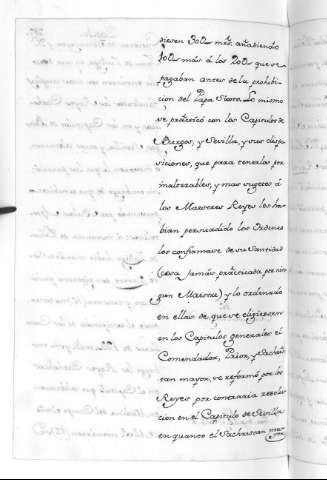 siesen 30U mrs. añadiendo
10U más á los 20U que se
pagaban antes de la prohibi-
cion del Papa Sixto. Lo mismo
se practicó con los Capitulos de
Burgos, y Sevilla, y sus dispo
siciones, que para tenerlas por
inalterables, y mas sugetos á
los Maestres Reyes los ha-
bian persuadido los Ordenes
los confirmase de su Santidad
(cosa jamás practicada por nin
gun Maestre) y lo ordenado
en ellas de que se eligiesen
en los Capitulos generales el
Comendador, Prior, y Sachris
tan mayor, se reformó por los
Reyes por contraria resolu
cion en el Capitulo de Sevilla
en quanto el Sachristan ma